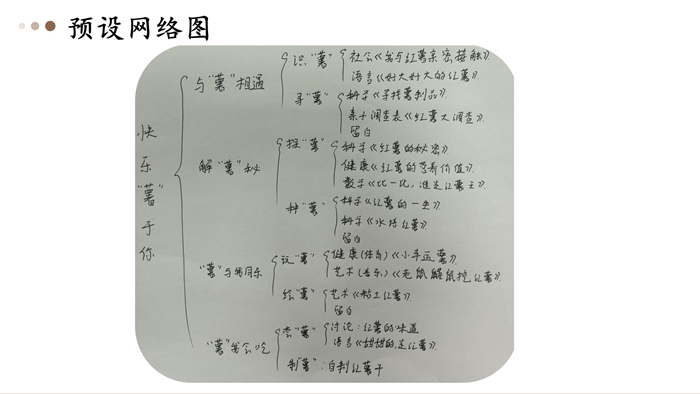 预设网络图
快乐“薯”于你
与“薯”相遇
识“薯”
社会《我与红薯亲密接触》
语言《好大好大的红薯》
寻“薯”
科学《寻找薯制品》
亲子调查表《红薯大调查》
留白
解“薯”秘
探“薯”
科学《红薯的秘密》
健康《红薯的营养价值》
数学《比一比，谁是红薯王》
种“薯”
科学《红薯的一生》
科学《水培红薯》
留白
“薯”与我同乐
玩“薯”
健康(体育)《小车运薯》
艺术(音乐)《老鼠鼹鼠挖红薯》
绘“薯”
艺术《粘土红薯》
留白
“薯”我会吃
尝“薯”
讨论：红薯的味道
语言《甜甜的,是红薯》
制“薯”：自制红薯干